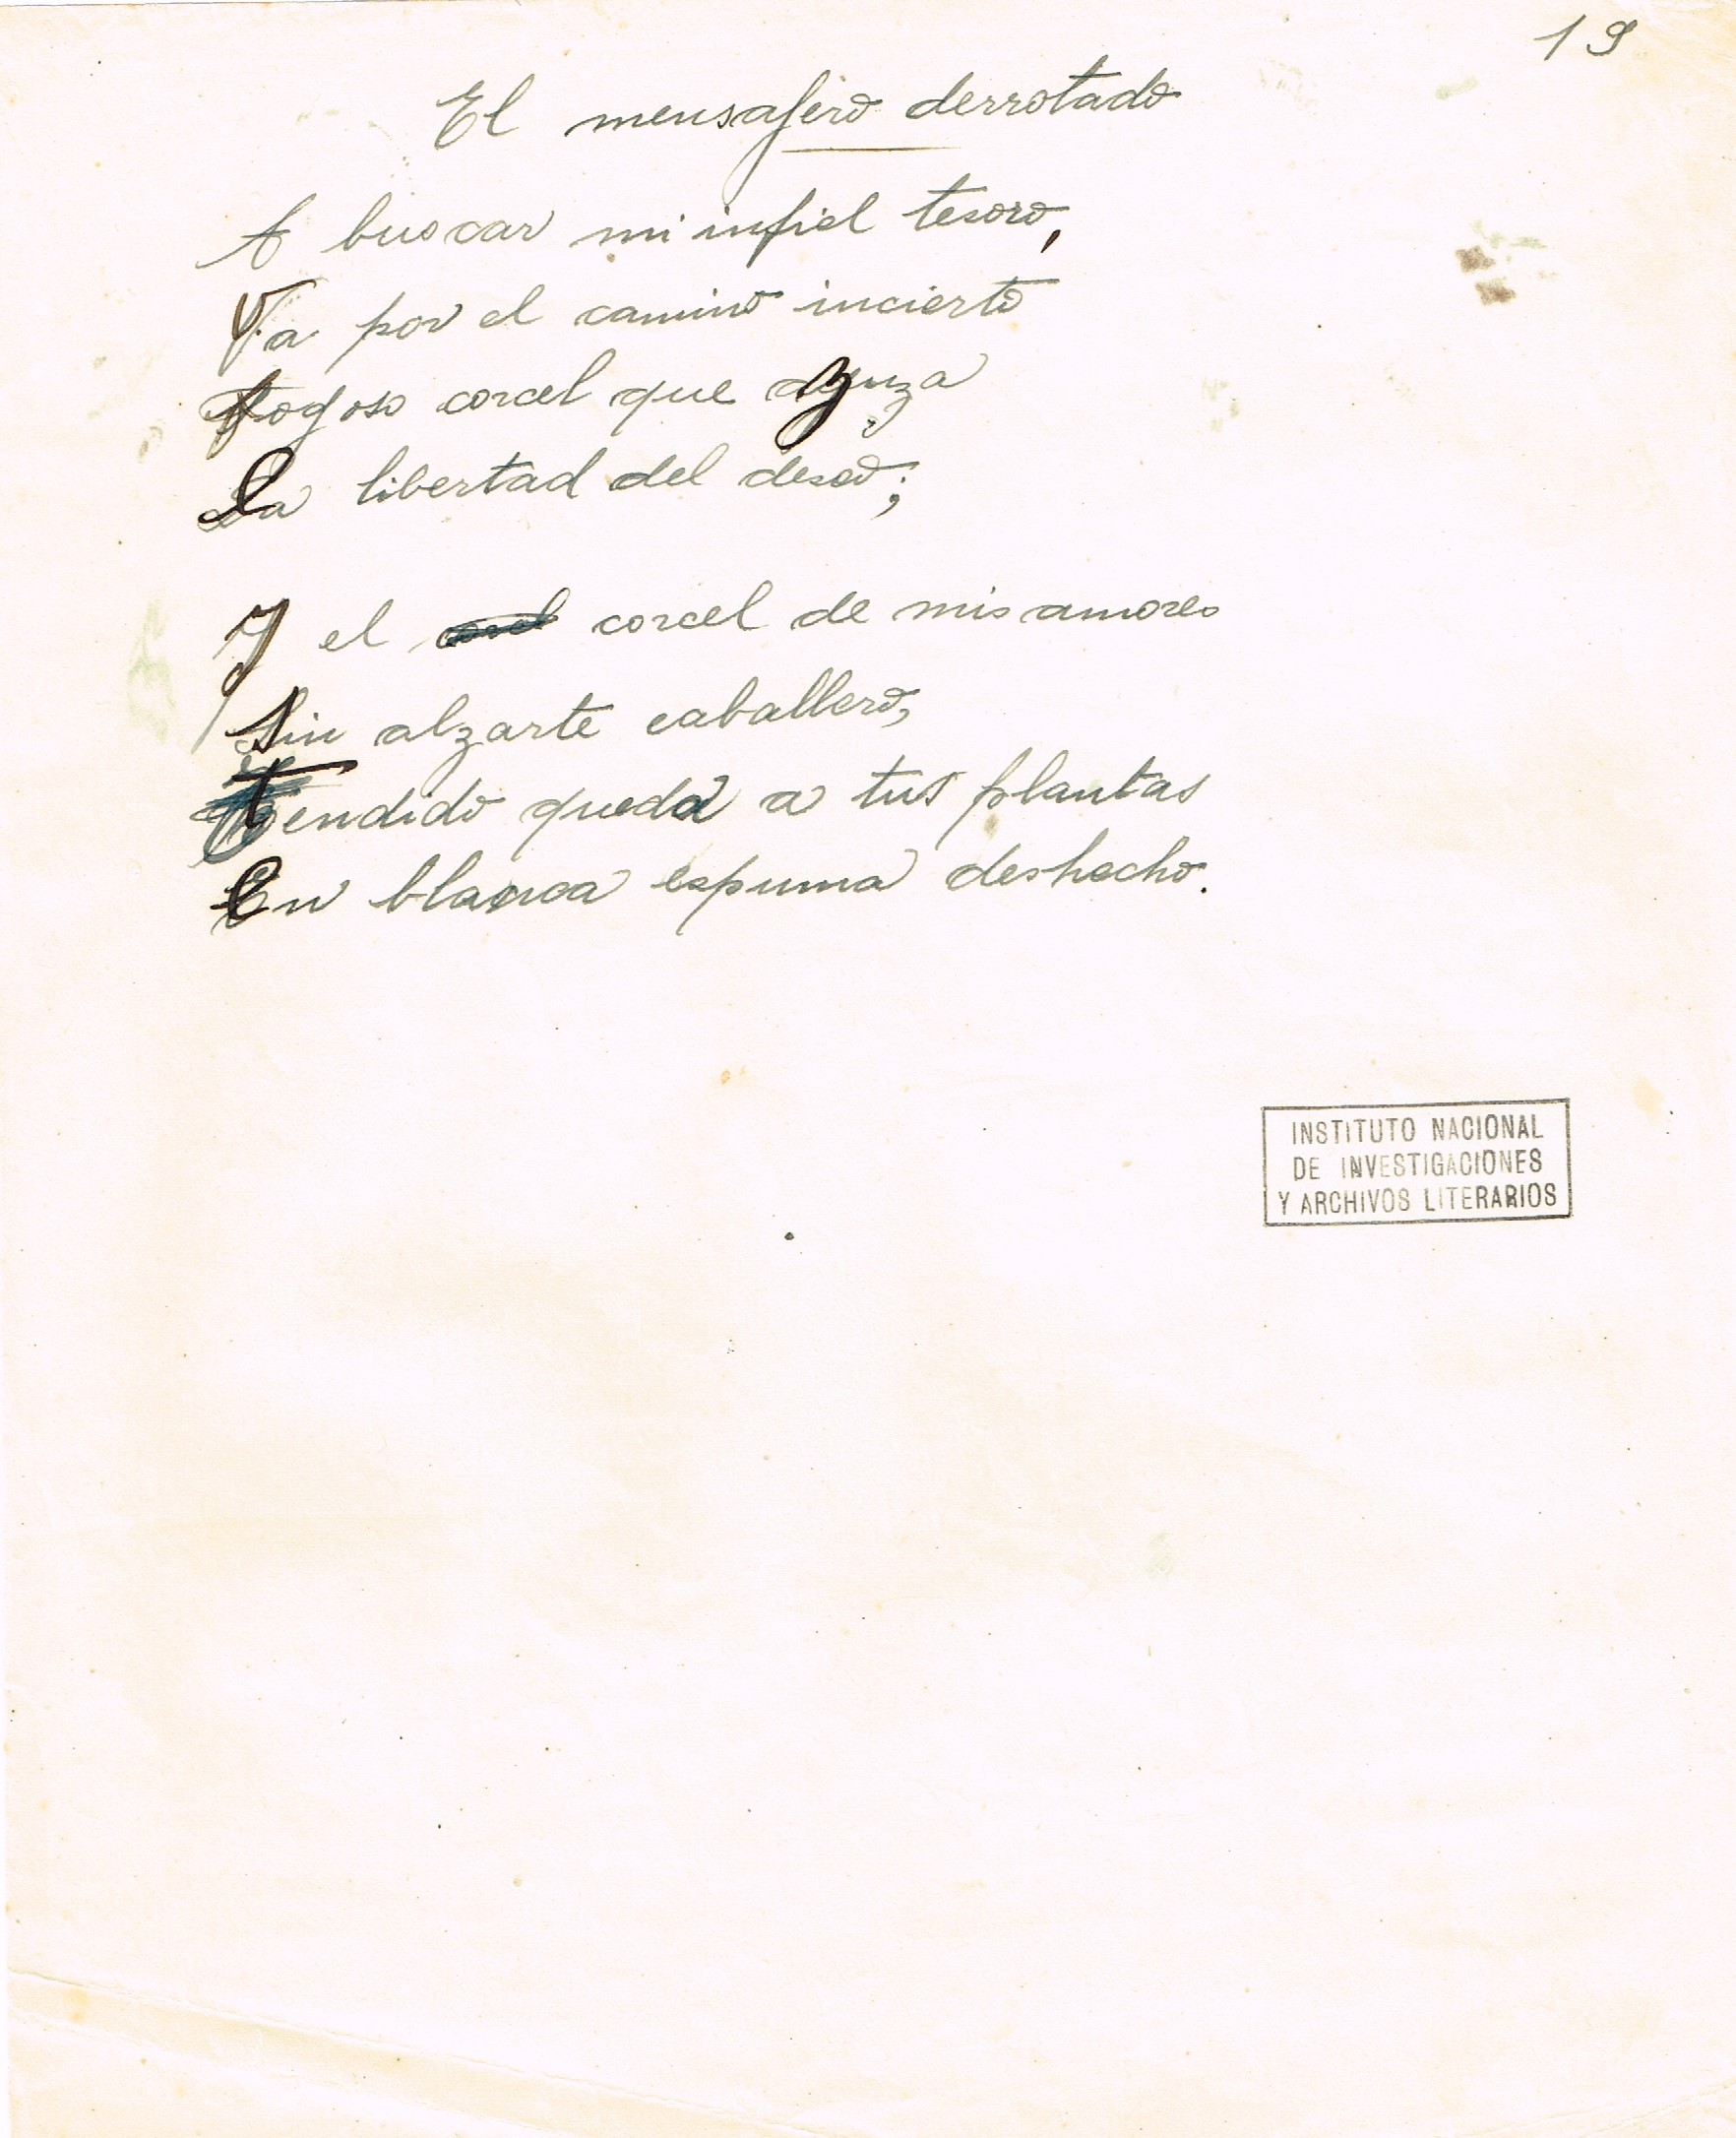 19
El mensajero derrotado
A buscar mi infiel tesoro,
Va por el camino incierto
fogoso corcel que aguza
la libertad del deseo;
y el corcel de mis amores
sin alzarte caballero,
tendido queda a tus plantas
en blanca espuma deshecho.
INSTITUTO NACIONAL
DE INVESTIGACIONES
Y ARCHIVOS LITERARIOS